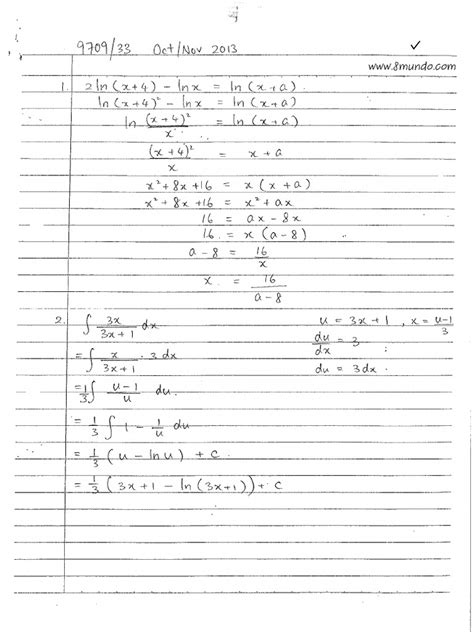 9709/33 Oct/Nov 2013 ✓
www.8mundo.com
1. 2ln(x+4) - lnx = ln(x+a)
ln(x+4)² - lnx = ln(x+a)
ln (x+4)²/x = ln(x+a)
(x+4)²/x = x+a
x²+8x+16 = x(x+a)
x²+8x+16 = x²+ax
16 = ax-8x
16 = x(a-8)
a-8 = 16/x
x = 16/(a-8)
2. ∫ 3x/(3x+1) dx u = 3x+1, x = (u-1)/3
= ∫ x/(3x+1) · 3dx du/dx = 3
= 1/3 ∫ (u-1)/u du du = 3dx.
= 1/3 ∫ 1 - 1/u du
= 1/3 (u - lnu) + c
= 1/3 (3x+1 - ln(3x+1)) + c